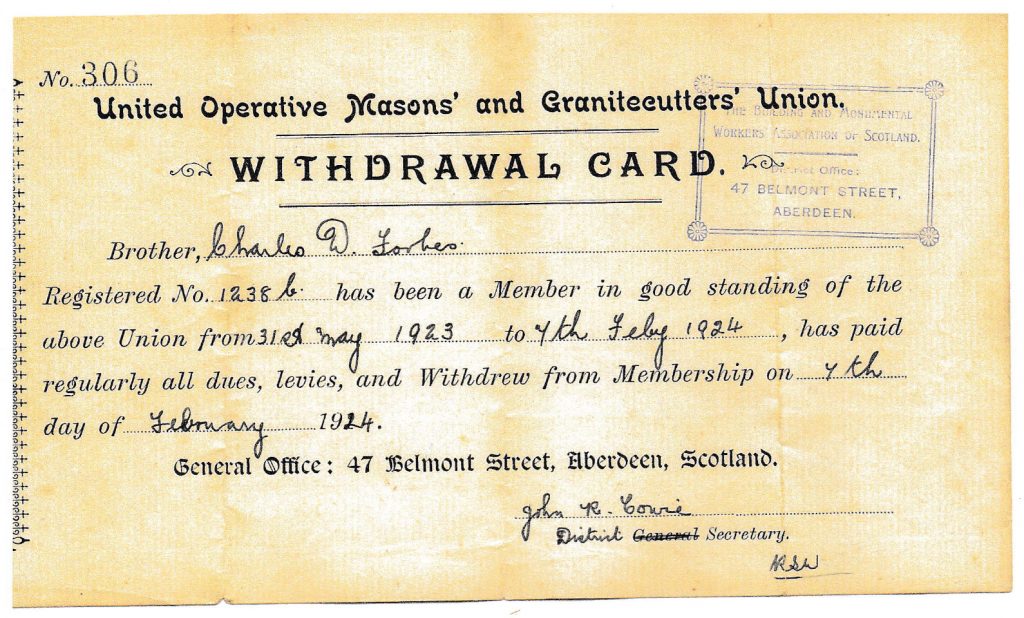 No. 306
United Operative Masons' and Granitecutters' Union.
THE BUILDING AND MONUMENTAL
WORKERS ASSOCIATION OF SCOTLAND.
District Office:
47 BELMONT STREET,
ABERDEEN.
WITHDRAWAL CARD.
Brother, Charles D. Forbes.
Registered No. 1238 b. has been a Member in good standing of the
above Union from 31st May 1923 to 7th Feby 1924, has paid
regularly all dues, levies, and Withdrew from Membership on 7th
day of February 1924.
General Office: 47 Belmont Street, Aberdeen, Scotland.
John R. Cowie
District General Secretary.